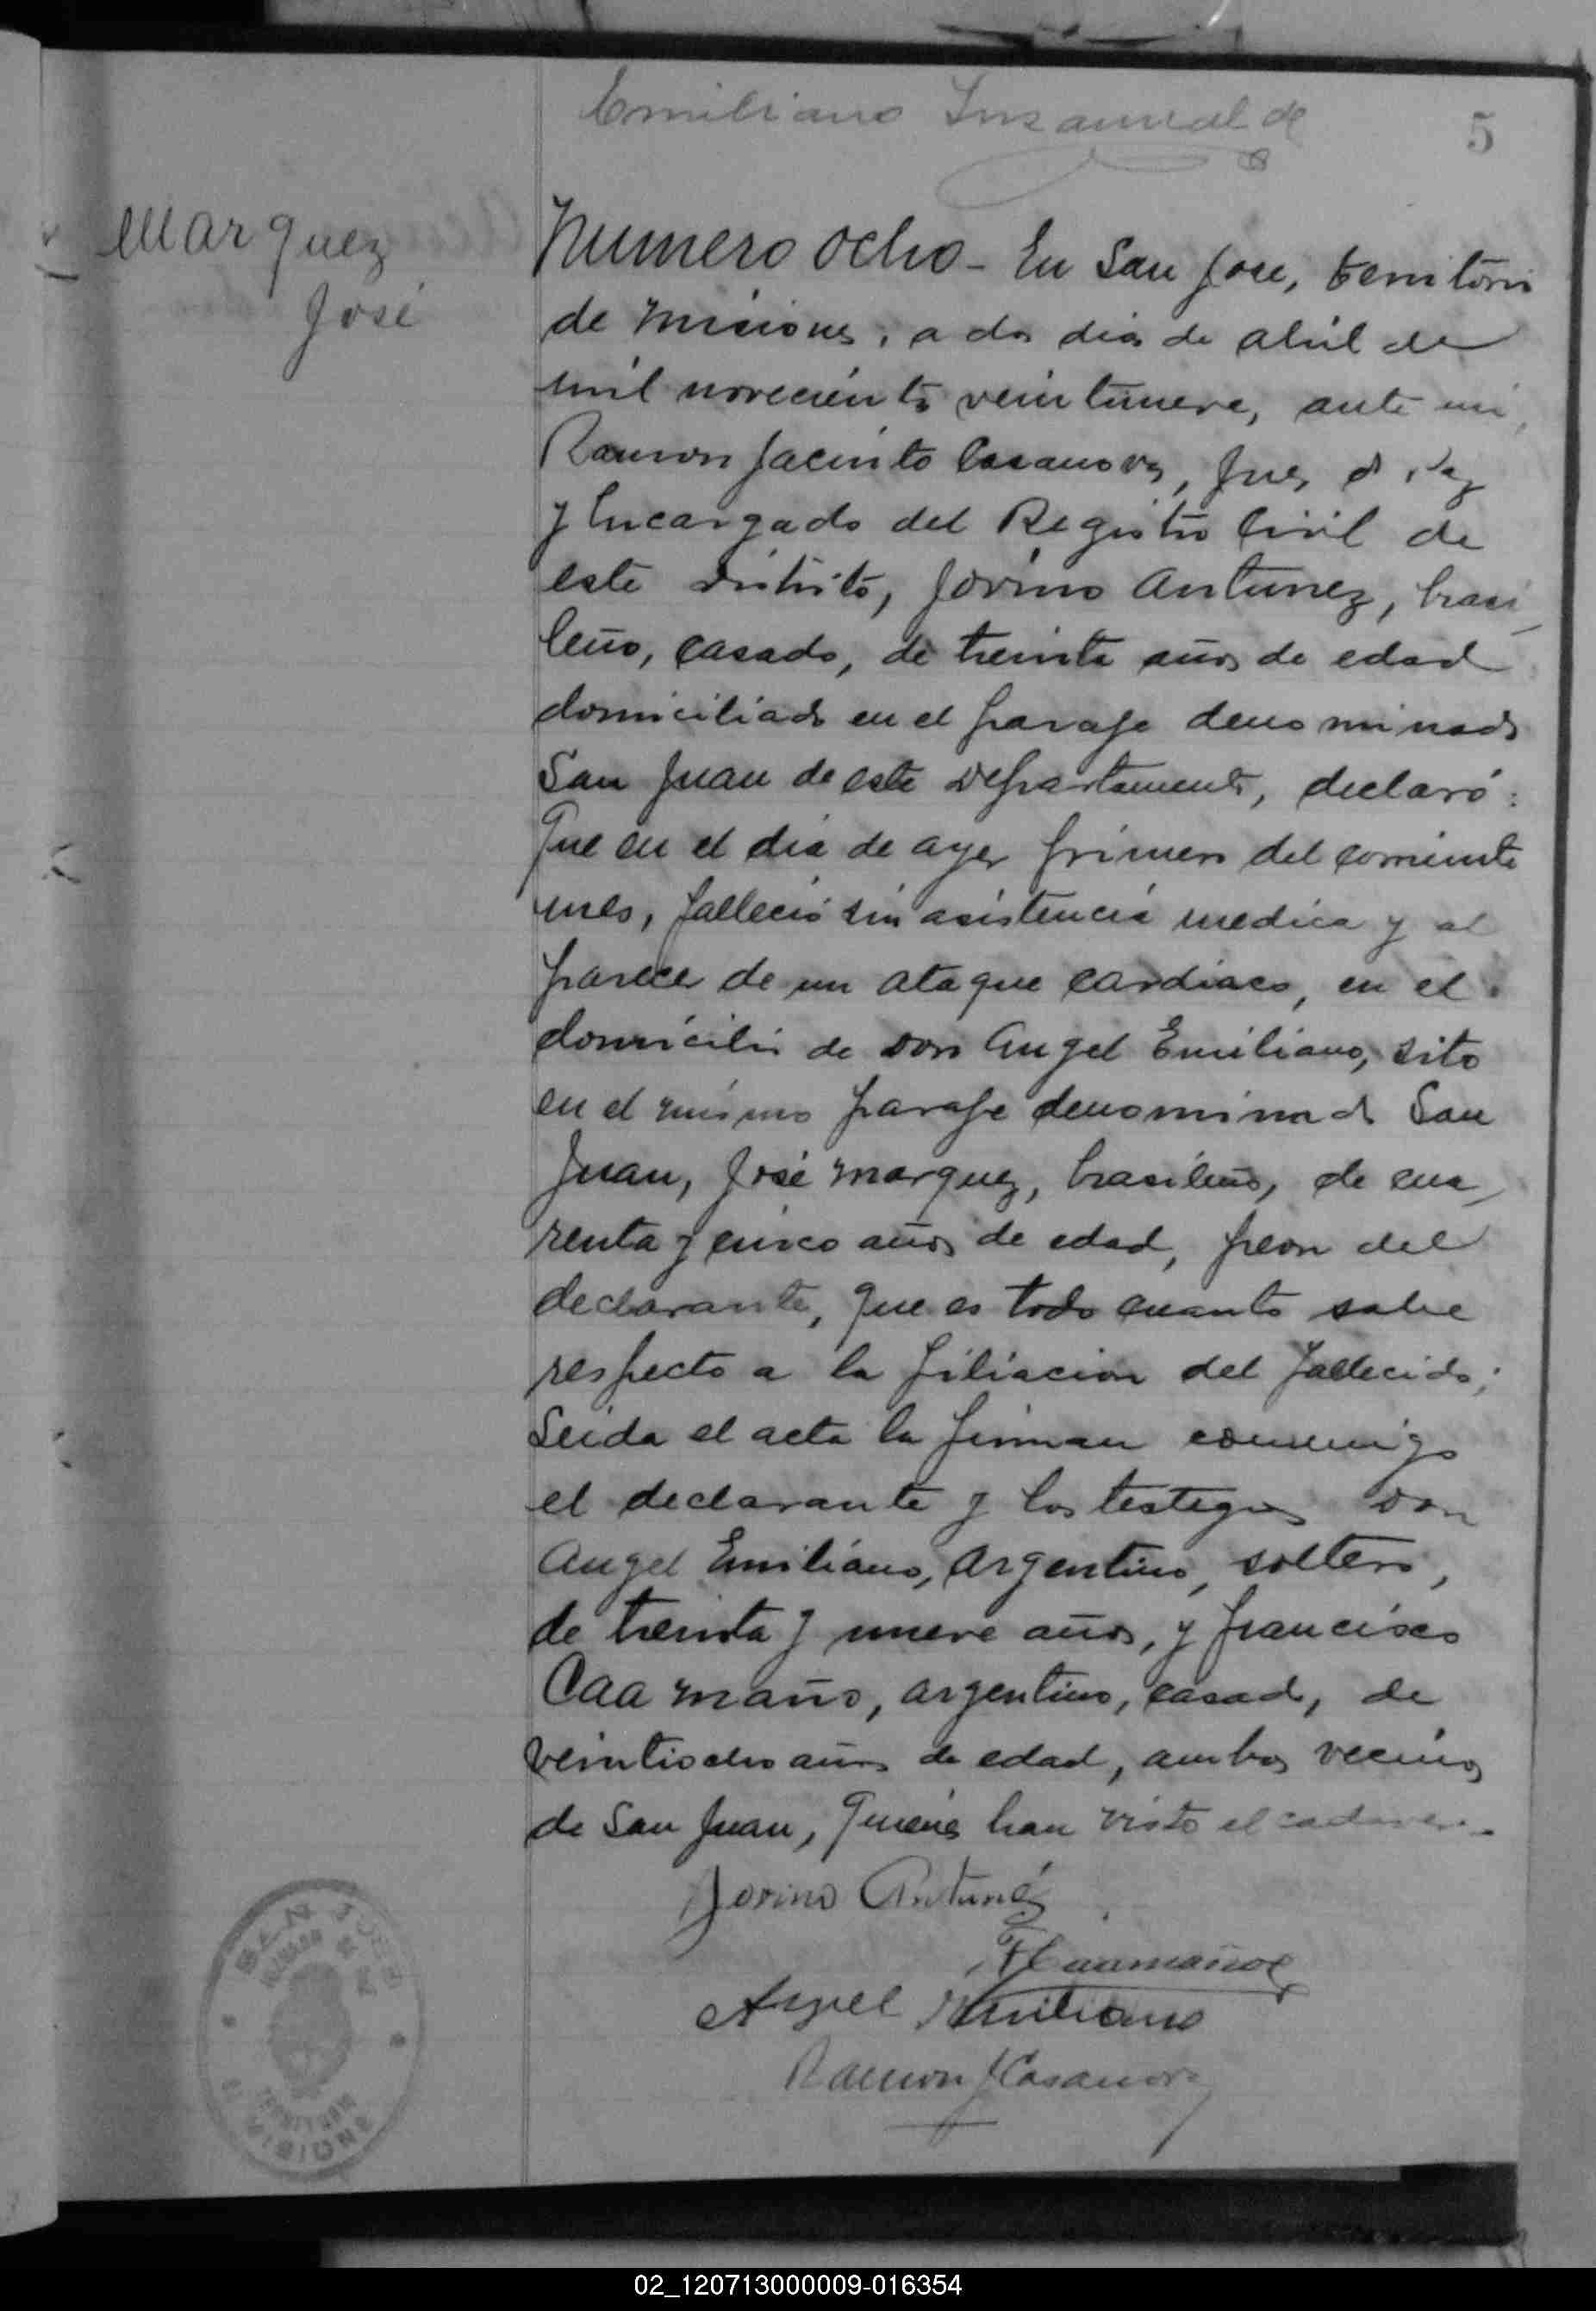 Emiliano
5
Marquez
José
Numero ocho - En San Jose, territorio
de Misiones, a dos dias de abril de
mil novecientos veintinueve, ante mi,
Ramon Jacinto Casanova, Juez de Paz
y Encargado del Registro Civil de
este distrito, Jovino Antunez, brasi
leño, casado, de treinta años de edad
domiciliado en el paraje denominado
San Juan de este Departamento, declaró:
Que en el dia de ayer primero del corriente
mes, falleció sin asistencia medica y al
parecer de un ataque cardiaco, en el
domicilio de Don Angel Emiliano, sito
en el mismo paraje denominado San
Juan, José Marquez, brasileño, de cua
renta y cinco años de edad, peon del
declarante, que es todo cuanto sabe
respecto a la filiacion del fallecido;
Leida el acta la firman conmigo
el declarante y los testigos Don
Angel Emiliano, Argentino, soltero,
de treinta y nueve años, y Francisco
Caamaño, argentino, casado, de
veintiocho años de edad, ambos vecinos
de San Juan, quienes han visto el cadaver.-
Jovino Antunez
F Caamaño
Angel Emiliano
Ramon J Casanova
SAN JOSE
JUZGADO DE PAZ
TERRITORIO
MISIONES
02_120713000009-016354